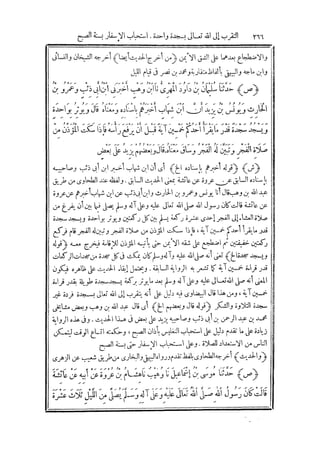 ٢٦٦ التقرب إلى الله تعالى بسجدة واحدة . استحباب الإسفار بسنة الصبح
والاضطجاع بعدهما على الشق الأيمن (من أخرج الحديث أيضا) أخرجه الشيخان والنسائى
وابن ماجه والبيهقى بألفاظ متقاربة ومحمد بن نصر فى قيام الليل
(ص) حدثنا سليمان بن داود المهرى نا ابن وهب أخبرنى ابن أبى ذئب وعمرو بن
الحارث ويونس بن يزيد أن ابن شهاب أخبرهم بإسناده ومعناه قال ويوتر بواحدة
ويسجد سجدة قدر ما يقرأ أحدكم خمسين آية قبل أن يرفع رأسه فإذا سكت المؤذن من
صلاة الفجر وتبين له الفجر وساق معناه قال وبعضهم يزيد على بعض
(ش) (قوله أخبرهم بإسناده الخ) أى أن ابن شهاب أخبر ابن أبى ذئب وصاحبيه
بإسناده السابق عن عروة عن عائشة بمعنى الحديث السابق . ولفظه عند الطحاوى من طريق
عبد الله بن وهب قال أنا يونس وعمرو بن الحارث وابن أبى ذئب عن ابن شهاب أخبرهم عن عروة
عن عائشة قالت كان رسول الله صلى الله تعالى عليه وعلى آله وسلم يصلى فيما بين أن يفرغ من
صلاة العشاء إلى الفجر إحدى عشرة ركعة يسلم بين كل ركعتين ويوتر بواحدة ويسجد سجدة
قدر ما يقرأ أحدكم خمسين آية ، فإذا سكت المؤذن من صلاة الفجر وتبين له الفجر قام فركع
ركعتين خفيفتين ثم اضطجع على شقه الأيمن حتى يأتيه المؤذن للإقامة فيخرج معه (قوله
ويسجد سجدة الخ) يعنى أنه صلى الله عليه وآله وسلم كان يمكث فى كل سجدة من سجدات الركعات
قدر قراءة خمسين آية كما تشعر به الرواية السابقة . ويحتمل إبقاء الحديث على ظاهره فيكون
المعنى أنه صلى الله تعالى عليه وعلى آله وسلم بعد ما يوتر بركعة يسجد سجدة طويلة بقدر قراءة
خمسين آية ، ومن هنا قال البيضاوى فيه دليل على أنه يتقرب إلى الله تعالى بسجدة فردة غير
سجدة التلاوة والشكر (قوله قال وبعضهم الخ) أى قال عبد الله بن وهب وبعض مشايخى
محمد بن عبد الرحمن بن أبى ذئب وصاحبيه يزيد على بعض فى هذا الحديث . وفى هذه الرواية
زيادة على ما تقدم دليل على استحباب التغليس بأذان الصبح ، وحكمته اتساع الوقت ليتمكن
الناس من الاستعداد للصلاة . وعلى استحباب الإسفار حتى بسنة الصبح
(والحديث) أخرجه الطحاوى بلفظ تقدم ورواه البيهقى والبخارى من طريق شعيب عن الزهرى
(ص) حدثنا موسى بن إسماعيل نا وهيب نا هشام بن عروة عن أبيه عن عائشة
قالت كان رسول الله صلى الله تعالى عليه وعلى آله وسلم يصلى من الليل ثلاث عشرة